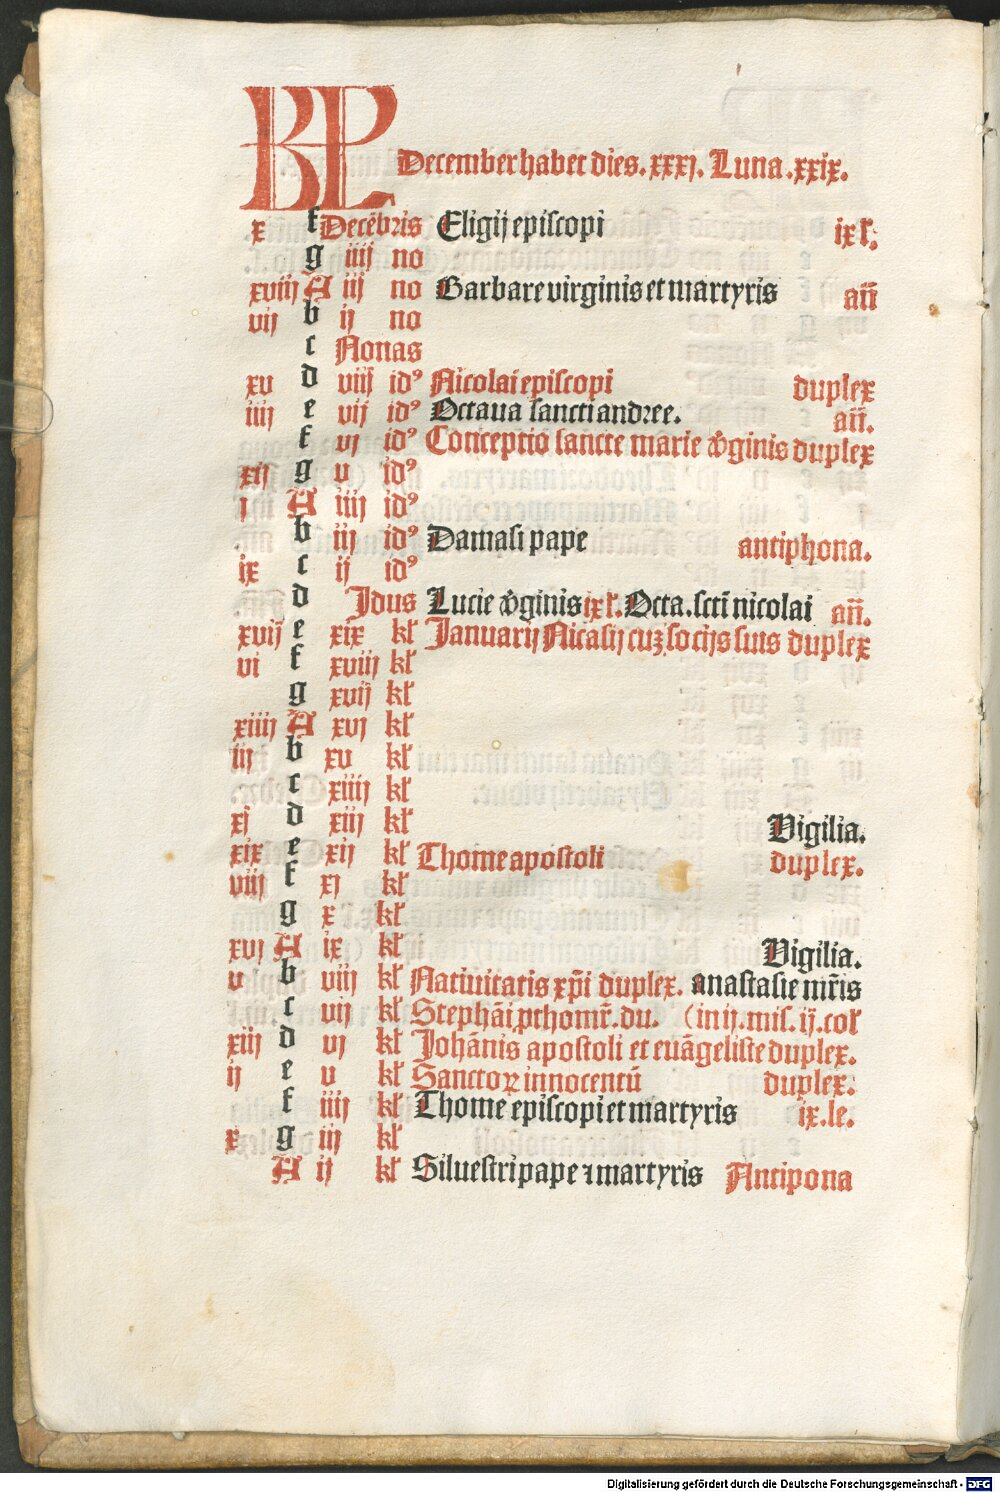 KL December habet dies. xxxj. Luna. xxix.
x f Decēbris Eligij episcopi ix l̄.
g iiij no
xviij A iij no Barbare virginis et martyris an̄
vij b ij no
c Nonas
xv d viij idꝰ Nicolai episcopi duplex
iiij e vij idꝰ Octaua sancti andree. an̄.
f vj idꝰ Conceptio sancte marie v̓ginis duplex
xij g v idꝰ
j A iiij idꝰ
b iij idꝰ Damasi pape antiphona.
ix c ij idꝰ
d Jdus Lucie v̓ginis ix l̄. Octa. scti̅ nicolai an̄.
xvij e xix kl̄ Januarij Nicasij cuꝫ socijs suis duplex
vi f xviij kl̄
g xvij kl̄
xiiij A xvj kl̄
iij b xv kl̄
c xiiij kl̄
xj d xiij kl̄ Vigilia.
xix e xij kl̄ Thome apostoli duplex.
viij f xj kl̄
g x kl̄
xvj A ix kl̄ Vigilia.
v b viij kl̄ Natiuitatis xp̄i duplex. anastasie mr̄is
c vij kl̄ Stephāi ꝓthomr̄. du. (in ij. mis. ij. col̄
xiij d vj kl̄ Johānis apostoli et euāgeliste duplex.
ij e v kl̄ Sanctoꝝ innocentū duplex.
f iiij kl̄ Thome episcopi et martyris ix. le.
x g iij kl̄
A ij kl̄ Siluestri pape ⁊ martyris Antipona
Digitalisierung gefördert durch die Deutsche Forschungsgemeinschaft - DFG